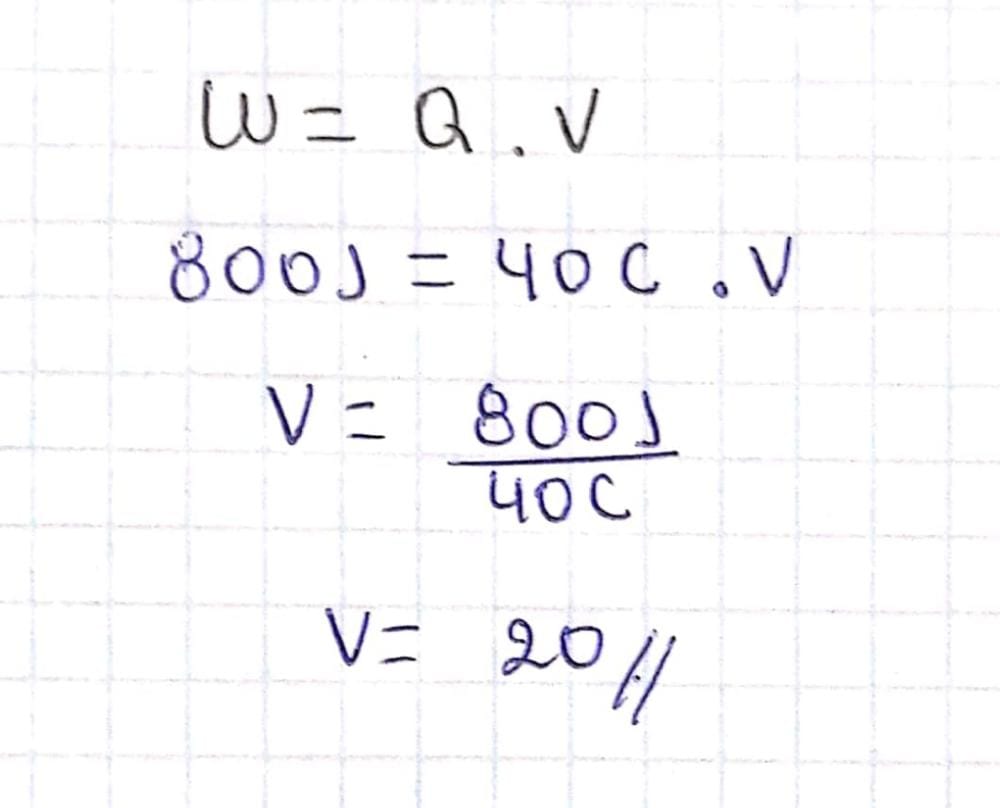 W = Q . V
800J = 40C . V
V = 800J
40C
V = 20 //